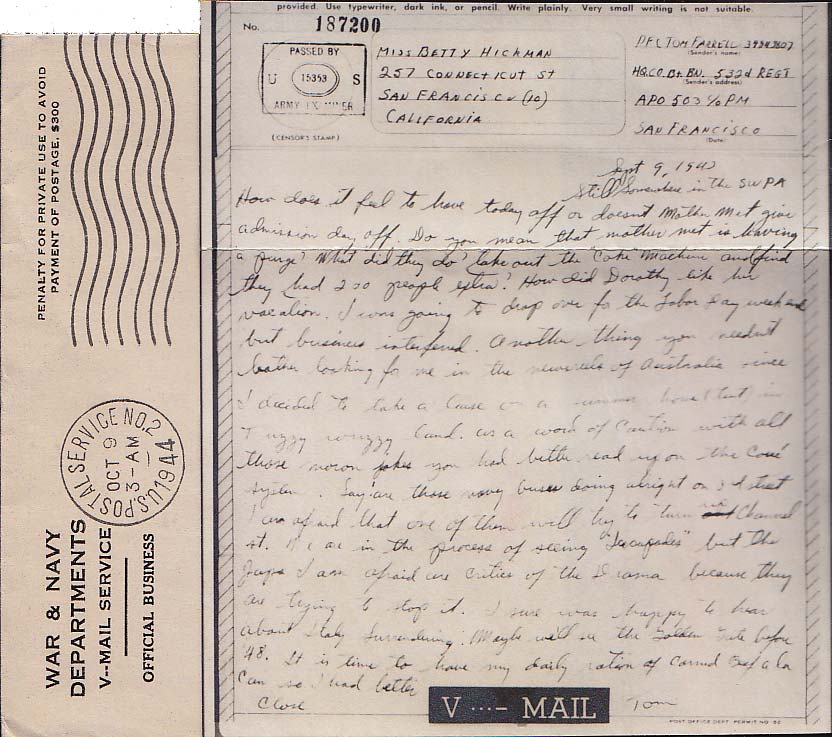 PENALTY FOR PRIVATE USE TO AVOID
PAYMENT OF POSTAGE, $300
U.S. POSTAL SERVICE NO. 2
OCT 9
3-AM
1944
WAR & NAVY
DEPARTMENTS
V--MAIL SERVICE
OFFICIAL BUSINESS
provided. Use typewriter, dark ink, or pencil. Write plainly. Very small writing is not suitable.
No. 187200
PASSED BY
U 15353 S
ARMY EXAMINER
(CENSOR'S STAMP)
MISS BETTY HICKMAN
257 CONNECTICUT ST
SAN FRANCISCO (10)
CALIFORNIA
PFC TOM FARRELL
(Sender's name)
HQ.CO. Bt. BN. 532d REGT
(Sender's address)
APO 503 % PM
SAN FRANCISCO
(Date)
Sept 9, 194
Still Somewhere in the SWPA
How does it feel to have today off or doesnt Mother Met give
admission day off. Do you mean that mother met is having
a purge? What did they do take out the "Coke" Machine and find
they had 200 people extra? How did Dorothy like her
vacation. I was going to drop over for the Labor Day week end
but business interfered. Another thing you needn't
bother looking for me in the newsreels of Australia since
I decided to take a lease on a summer home (tent) in
Fuzzy wuzzy land. as a word of Caution with all
those moron jokes you had better read up on the
system. Say are those navy buses doing alright on 3rd street
I am afraid that one of them will try to turn Channel
st. We are in the process of seeing but the
Japs I am afraid are critics of the Drama because they
are trying to stop it. I sure was happy to hear
about Italy Surrendering. Maybe we'll see the Golden Gate before
'48. It is time to have my daily ration of Corned Beef a la
Can so I had better
Close
Tom
V ...- MAIL
POST OFFICE DEPT. PERMIT NO.